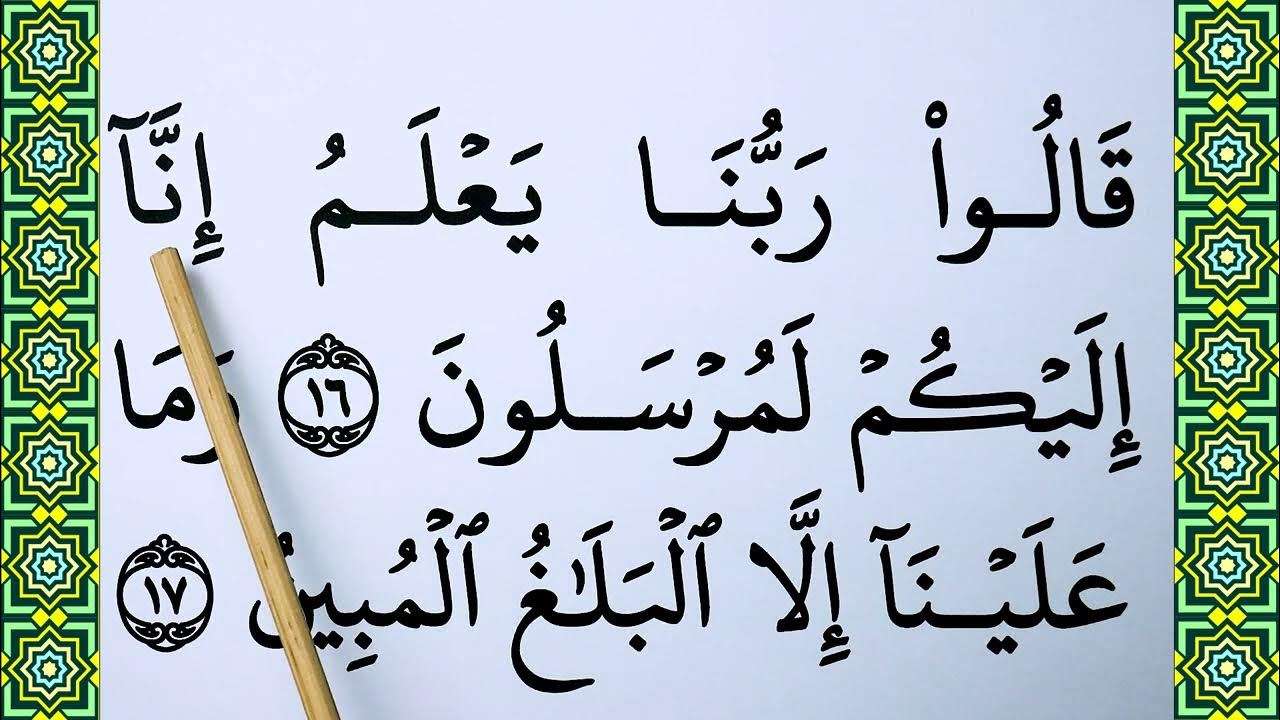 قَالُوا۟ رَبُّنَا يَعْلَمُ إِنَّآ
إِلَيْكُمْ لَمُرْسَلُونَ ١٦ وَمَا
عَلَيْنَآ إِلَّا ٱلْبَلَـٰغُ ٱلْمُبِينُ ١٧